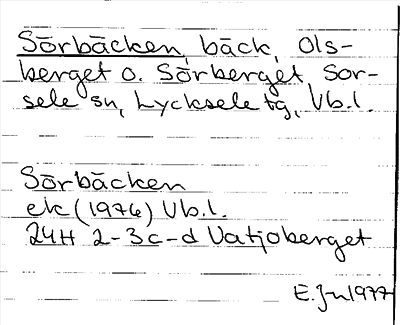 Sörbäcken, bäck, Ols-
berget o. Sörberget, Sor-
sele sn, Lycksele tg, Vb.l.
Sörbäcken
ek (1976) Vb.l.
24H 2-3c-d Vatjoberget
E. Jn 1977